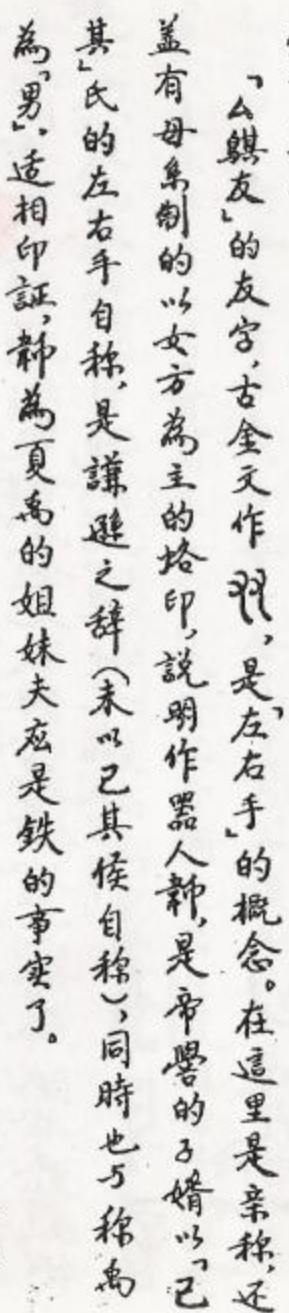 「厶騏友」的友字，古金文作𠬺，是「左右手」的概念。在這里是亲称，还
盖有母系制的以女方為主的烙印，説明作器人鄣，是帝嚳的子婿以「己
其」氏的左右手自称，是謙遜之辞（未以己其侯自称），同時也与称禹
為「男」，适相印証，为頁禹的姐妹夫应是鉄的事实了。